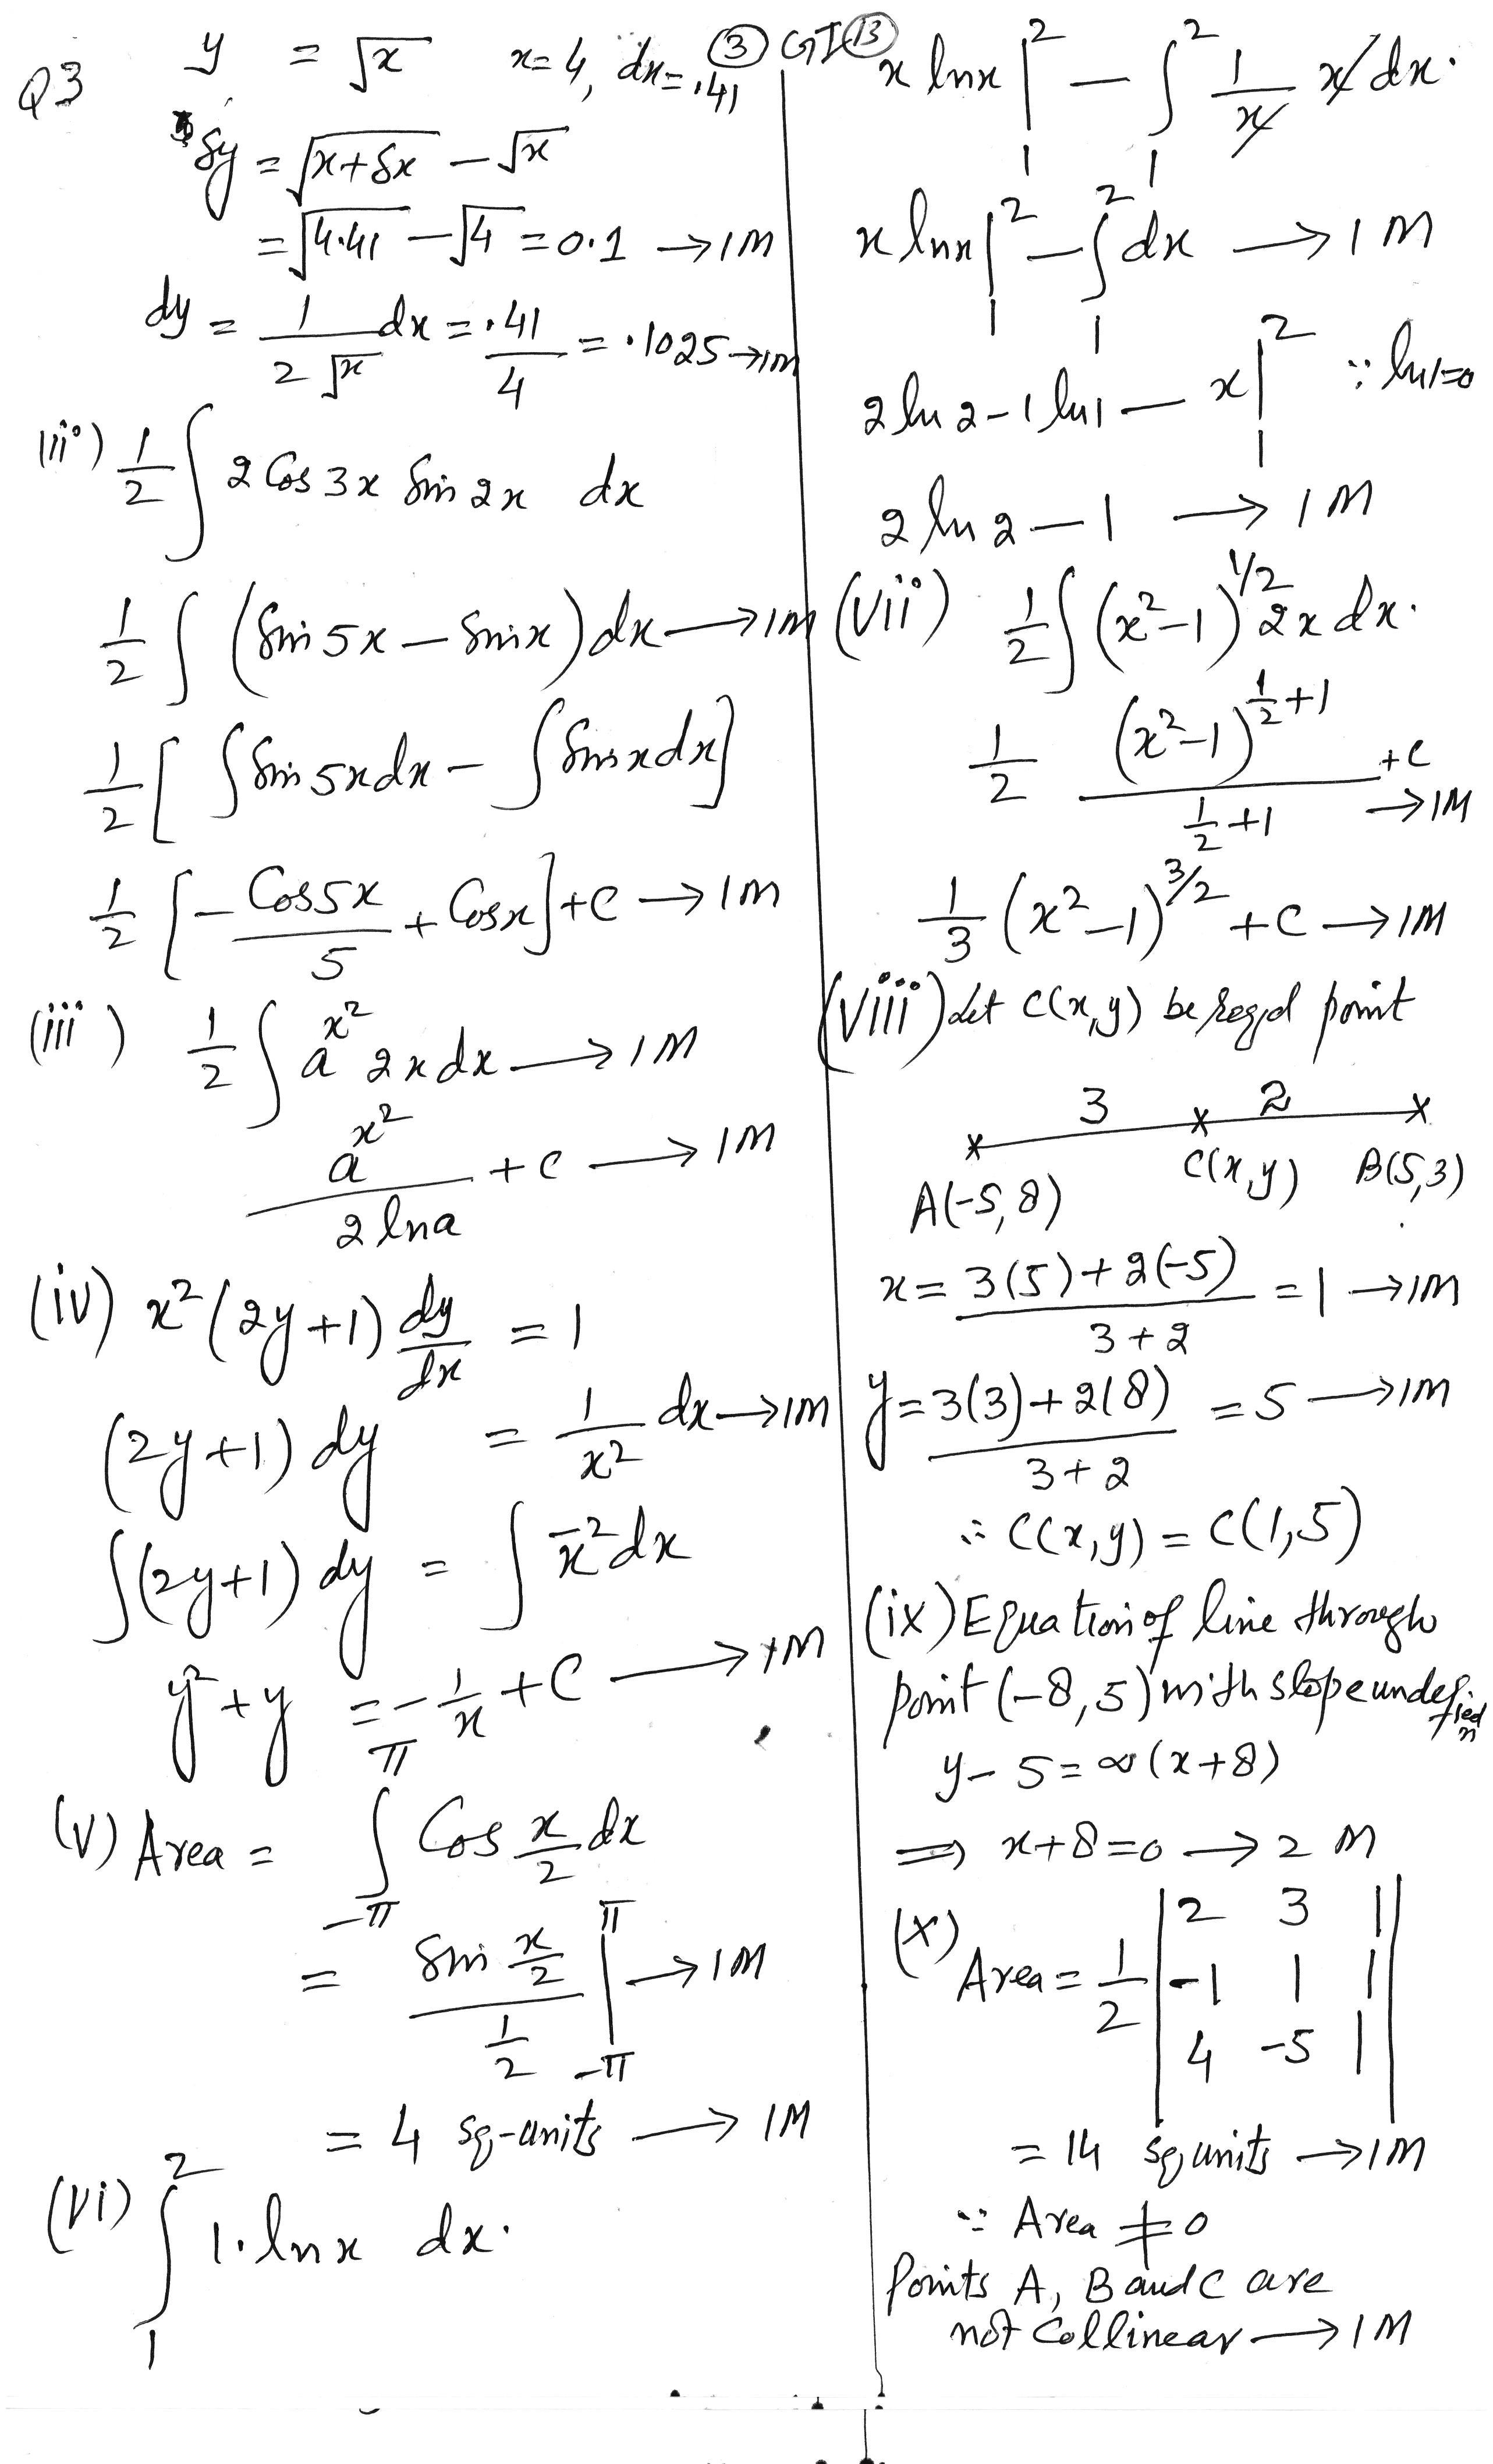 ③ GI ⑬
Q3 y = √x x=4, dx=.41
δy = √x+δx − √x
= √4.41 − √4 = 0.1 → 1M
dy = 1/(2√x) dx = .41/4 = .1025 → 1M
(ii) 1/2 ∫ 2 Cos 3x Sin 2x dx
1/2 ∫ (Sin 5x − Sin x) dx → 1M
1/2 [ ∫ Sin 5x dx − ∫ Sin x dx ]
1/2 [ − Cos5x/5 + Cos x ] + C → 1M
(iii) 1/2 ∫ a^x² 2x dx → 1M
a^x²/(2 ln a) + C → 1M
(iv) x² (2y+1) dy/dx = 1
(2y+1) dy = 1/x² dx → 1M
∫ (2y+1) dy = ∫ x⁻² dx
y² + y = − 1/x + C → 1M
(v) Area = ∫_{-π}^{π} Cos x/2 dx
= (Sin x/2)/(1/2) |_{-π}^{π} → 1M
= 4 sq-units → 1M
(vi) ∫_1^2 1·ln x dx.
x ln x |_1^2 − ∫_1^2 1/x x dx.
x ln x |_1^2 − ∫_1^2 dx → 1M
2 ln 2 − 1 ln 1 − x |_1^2 ∵ ln 1=0
2 ln 2 − 1 → 1M
(vii) 1/2 ∫ (x²−1)^1/2 2x dx.
1/2 (x²−1)^(1/2+1)/(1/2+1) + C → 1M
1/3 (x²−1)^3/2 + C → 1M
(viii) Let C(x,y) be reqd point
3 2
A(-5,8) C(x,y) B(5,3)
x = (3(5)+2(-5))/(3+2) = 1 → 1M
y = (3(3)+2(8))/(3+2) = 5 → 1M
∴ C(x,y) = C(1,5)
(ix) Equation of line through
point (-8,5) with slope undefined
y − 5 = ∞ (x+8)
⟹ x+8=0 → 2 M
(x) Area = 1/2 | 2 3 1 |
| -1 1 1 |
| 4 -5 1 |
= 14 sq units → 1M
∵ Area ≠ 0
Points A, B and C are
not Collinear → 1M